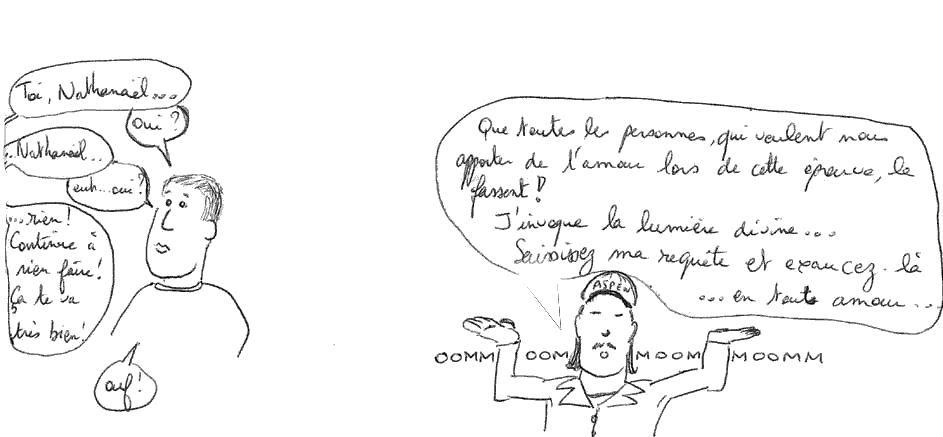 Toi, Nathanaël...
oui ?
...Nathanaël...
euh...oui ?
...rien !
Continue à
rien faire !
Ça te va
très bien !
ouf !
Que toutes les personnes, qui veulent nous
apporter de l'amour lors de cette épreuve, le
fassent !
J'invoque la lumière divine...
Saisissez ma requête et exaucez-là
...en toute amour...
ASPEN
OOMM OOM O MOOM MOOMM